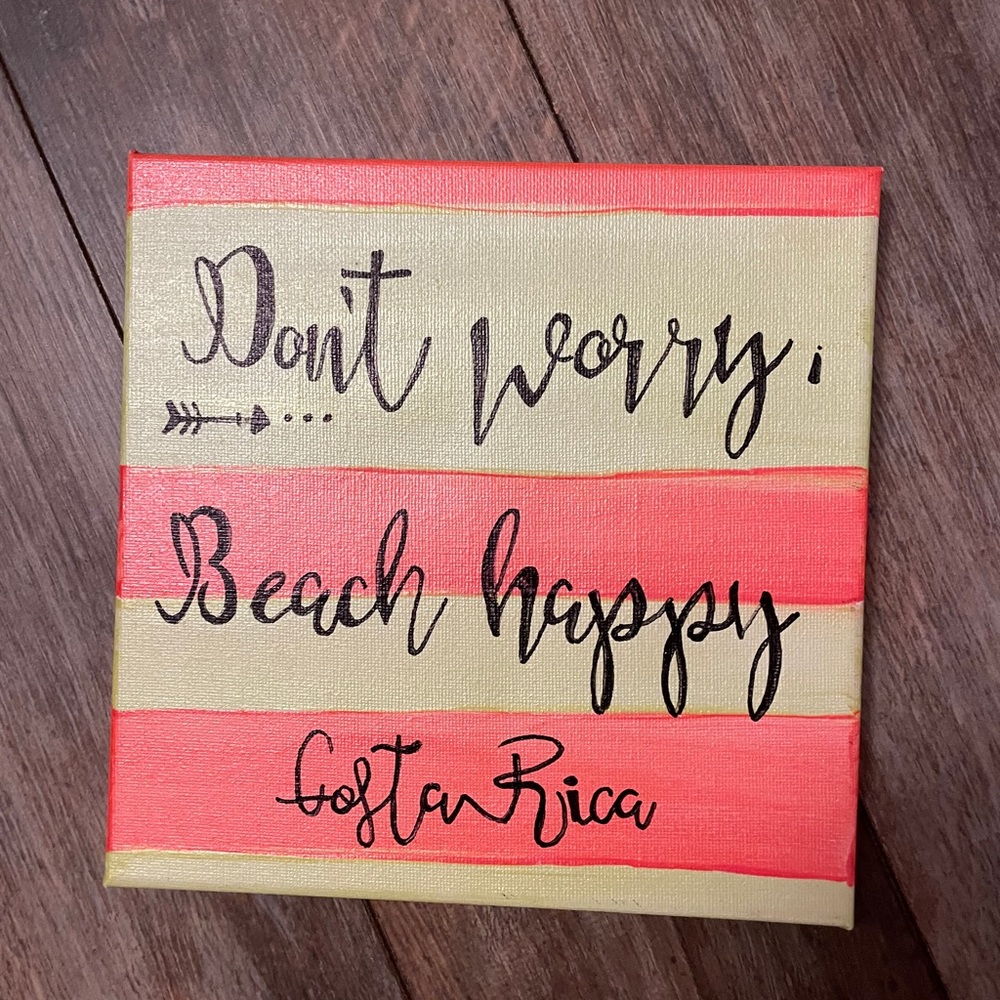 Don't worry;
...
Beach happy
Costa Rica